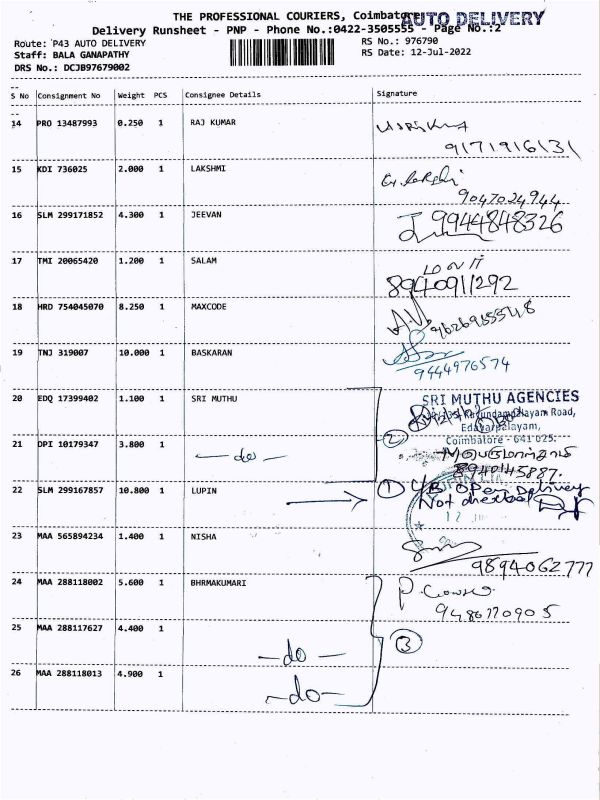 THE PROFESSIONAL COURIERS, Coimbatore
AUTO DELIVERY
Delivery Runsheet - PNP - Phone No.:0422-3505555 - Page No.:2
Route: P43 AUTO DELIVERY
RS No.: 976790
Staff: BALA GANAPATHY
RS Date: 12-Jul-2022
DRS No.: DCJB97679002
S No Consignment No Weight PCS Consignee Details Signature
14 PRO 13487993 0.250 1 RAJ KUMAR
9171916131
15 KDI 736025 2.000 1 LAKSHMI
9047024944
16 SLM 299171852 4.300 1 JEEVAN 9944848326
17 TMI 20065420 1.200 1 SALAM
8940911292
18 HRD 754045070 8.250 1 MAXCODE
19 TNJ 319007 10.000 1 BASKARAN
9444976574
20 EDQ 17399402 1.100 1 SRI MUTHU SRI MUTHU AGENCIES
Road,
Edayarpalayam,
Coimbatore - 641 025.
21 DPI 10179347 3.800 1 -do- 2
8940145887.
22 SLM 299167857 10.800 1 LUPIN 1 Open Delivery
Not checked
12
23 MAA 565894234 1.400 1 NISHA
9894062777
24 MAA 288118002 5.600 1 BHRMAKUMARI
25 MAA 288117627 4.400 1 -do- 3
26 MAA 288118013 4.900 1 -do-